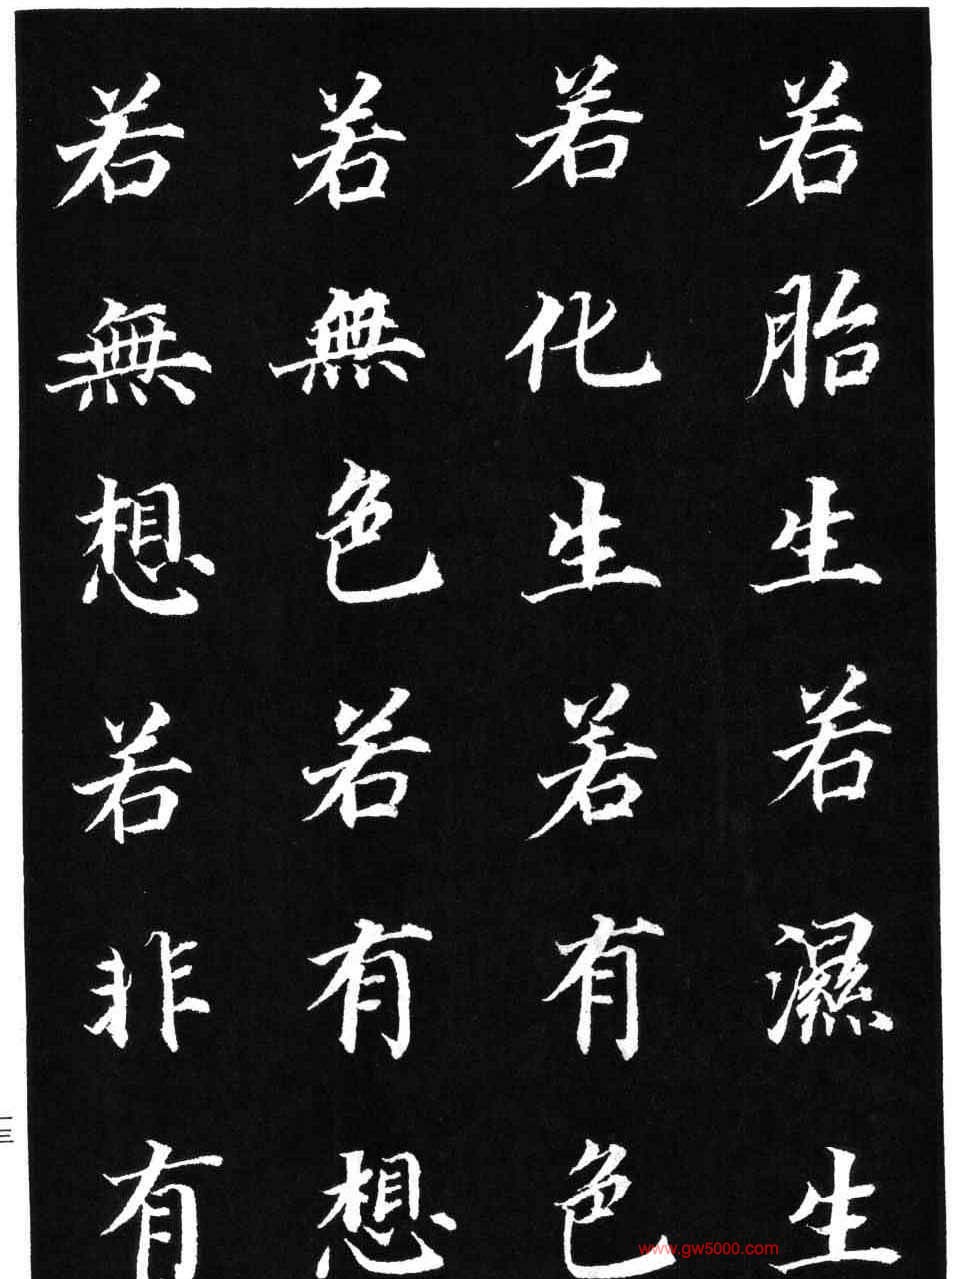 若胎生若濕生
若化生若有色
若無色若有想
若無想若非有
一三
www.gw5000.com